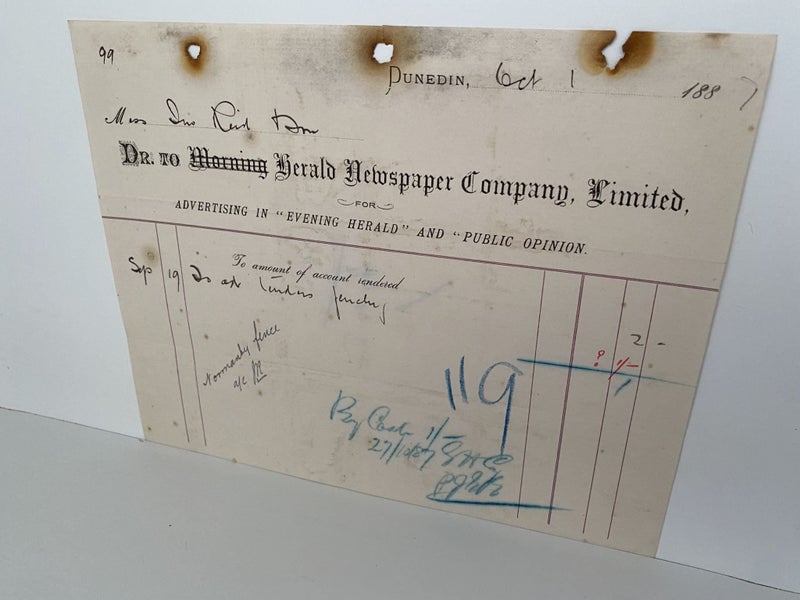 99
DUNEDIN, Oct 1 1887
Mess
DR. TO Morning Herald Newspaper Company, Limited,
FOR
ADVERTISING IN "EVENING HERALD" AND "PUBLIC OPINION.
To amount of account rendered
Sep 19 To adv tenders fencing
2 -
? 1/-
Normanby fence
a/c
119
By Cash 1/-
27/10/87